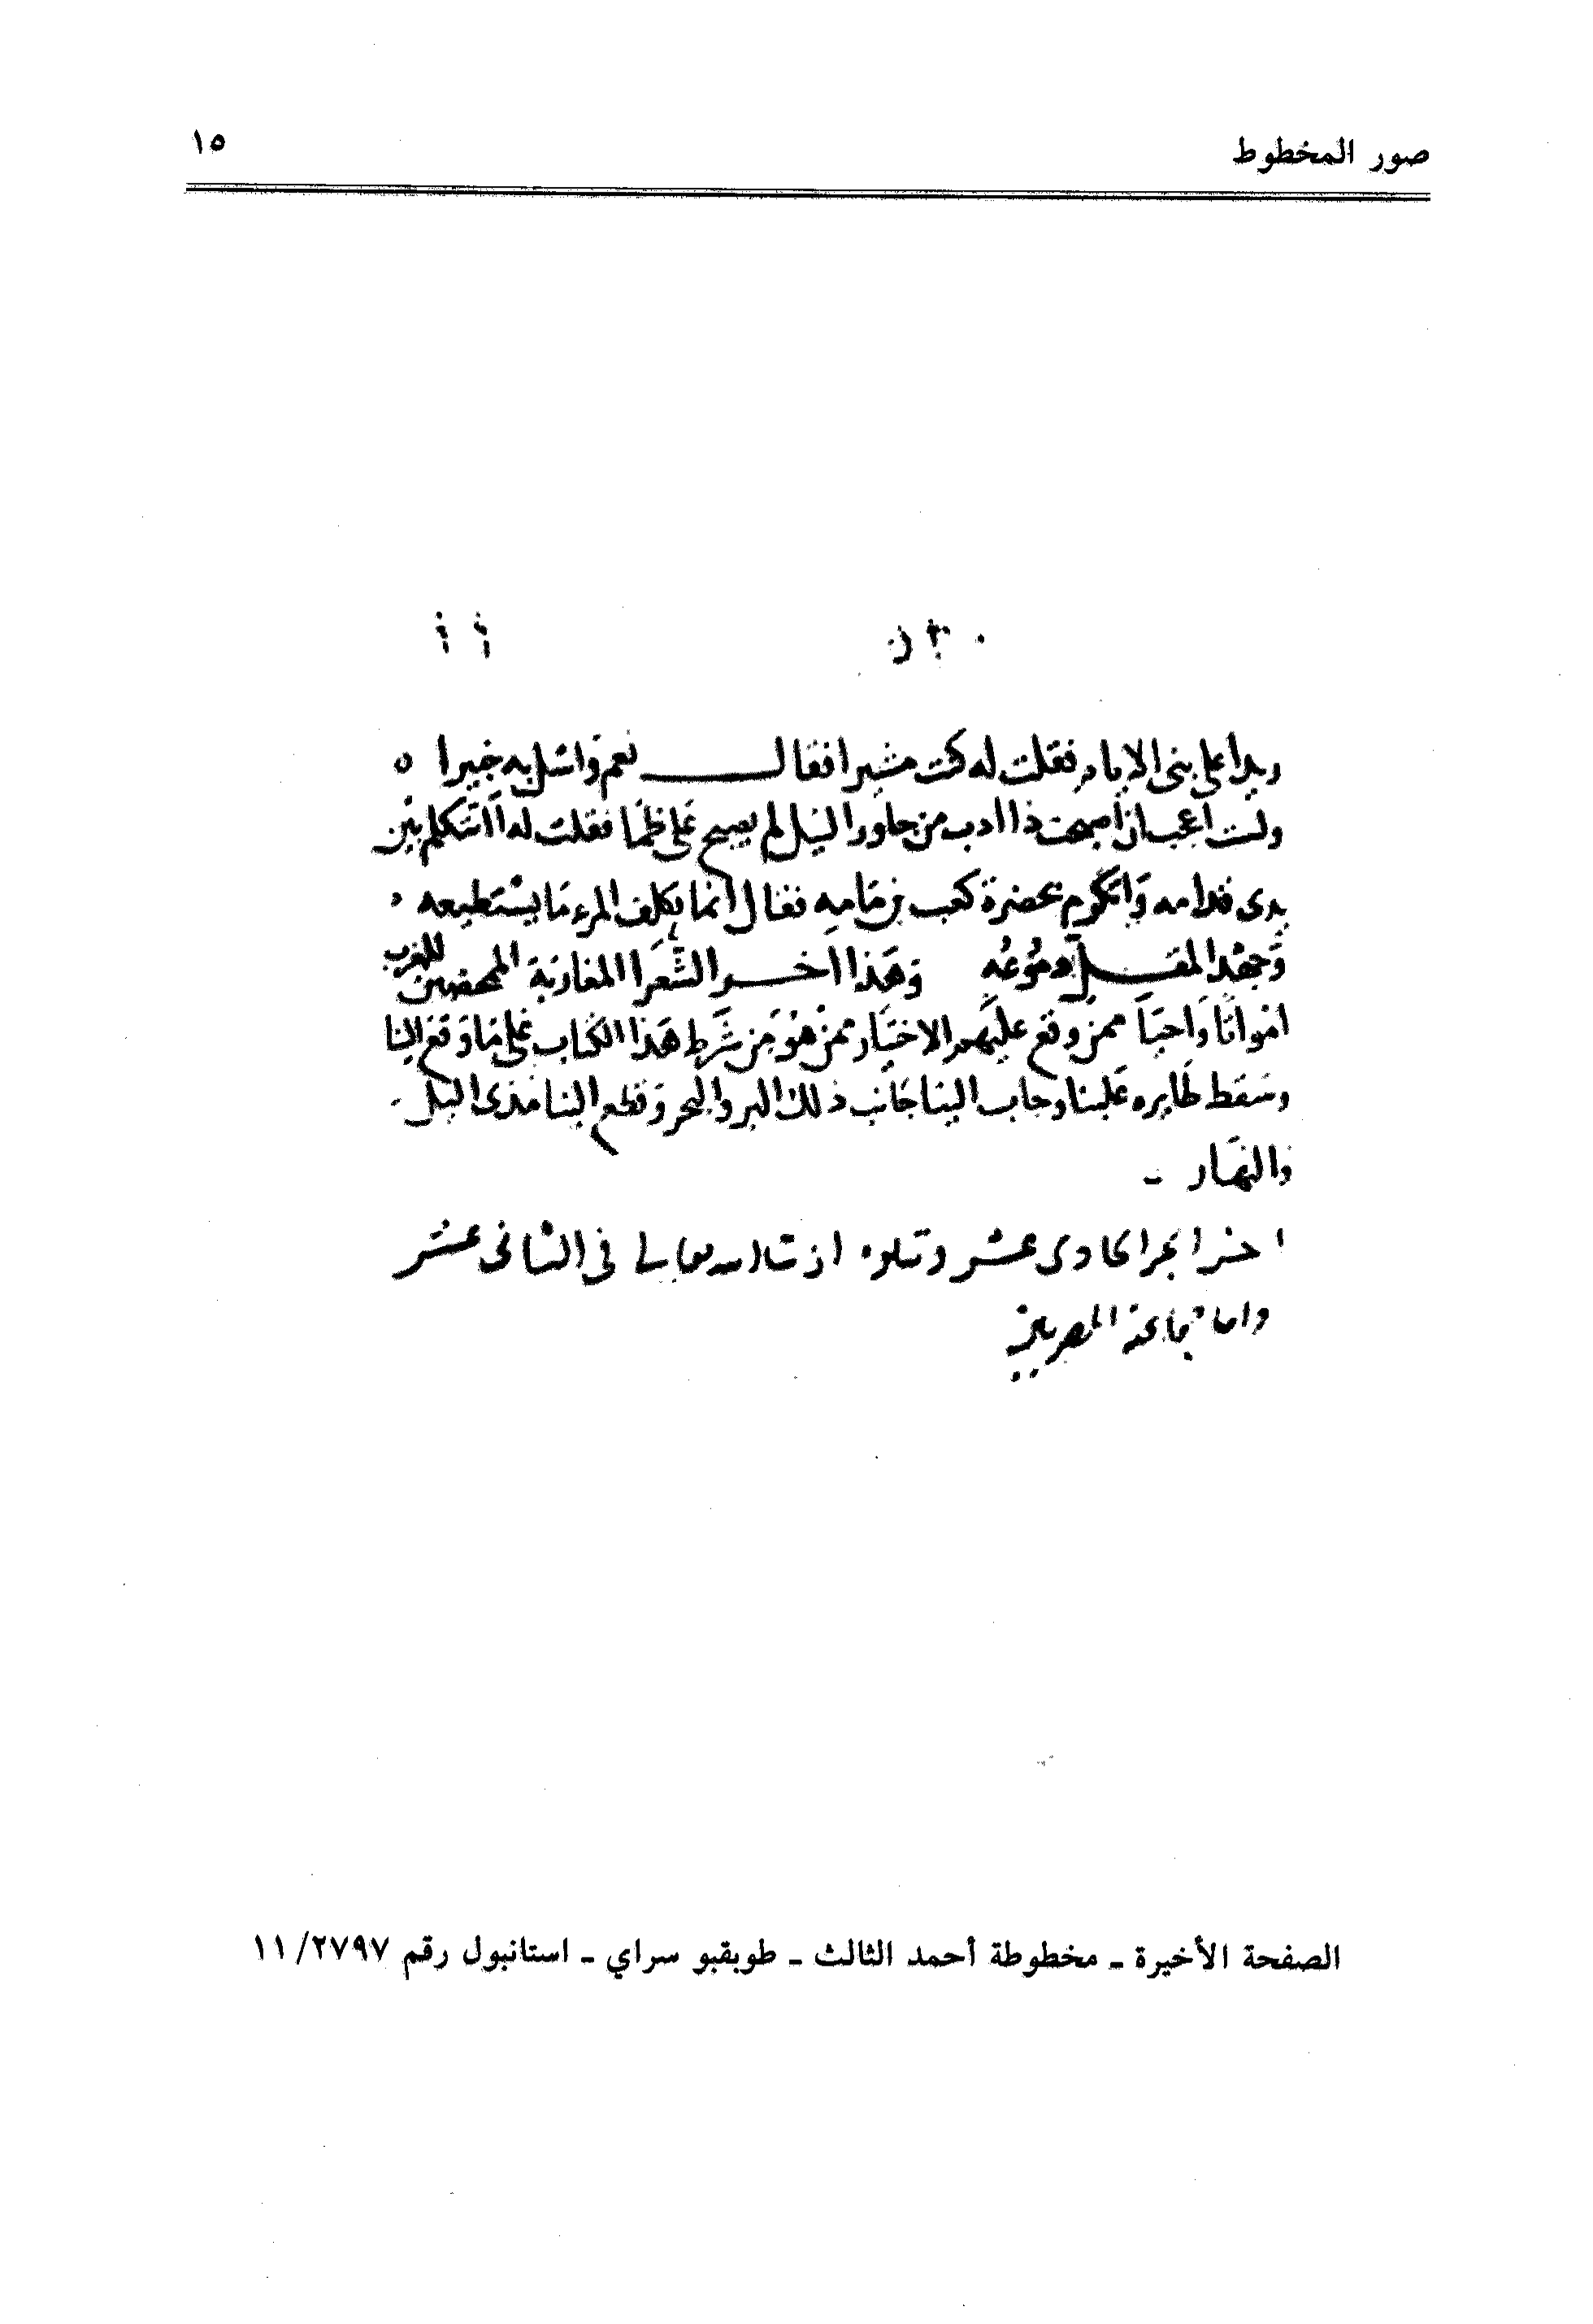 صور المخطوط
١٥
ويدا على بنى الايام فقلت له كنت مشيرا فقال نعم واسئل به خبيرا ٥
ولست اعجب ان اصبحت ذا ادب من جاور النيل لم يصبح على ظما فقلت له ااتكلم بين
يدى قدامه واتكرم بحضرة كعب بن مامه فقال انما يكلف المرء ما يستطيعه
وجهد المقل دموعه وهذا اخر الشعرا المغاربة المحضين للغرب
امواتا واحيا ممن وقع عليهم الاختيار ممن هو من شرط هذا الكتاب على ما وقع الينا
وسقط طايره علينا وجاب الينا جانب ذلك البر والبحر وقطع الينا مدى اليل
والنهار
اخر الجزا الحادى عشر وتلوه ان شا الله تعالى فى الثانى عشر
واما جماعة المصريين
الصفحة الأخيرة ـ مخطوطة أحمد الثالث ـ طوبقبو سراي ـ استانبول رقم ١١/٢٧٩٧